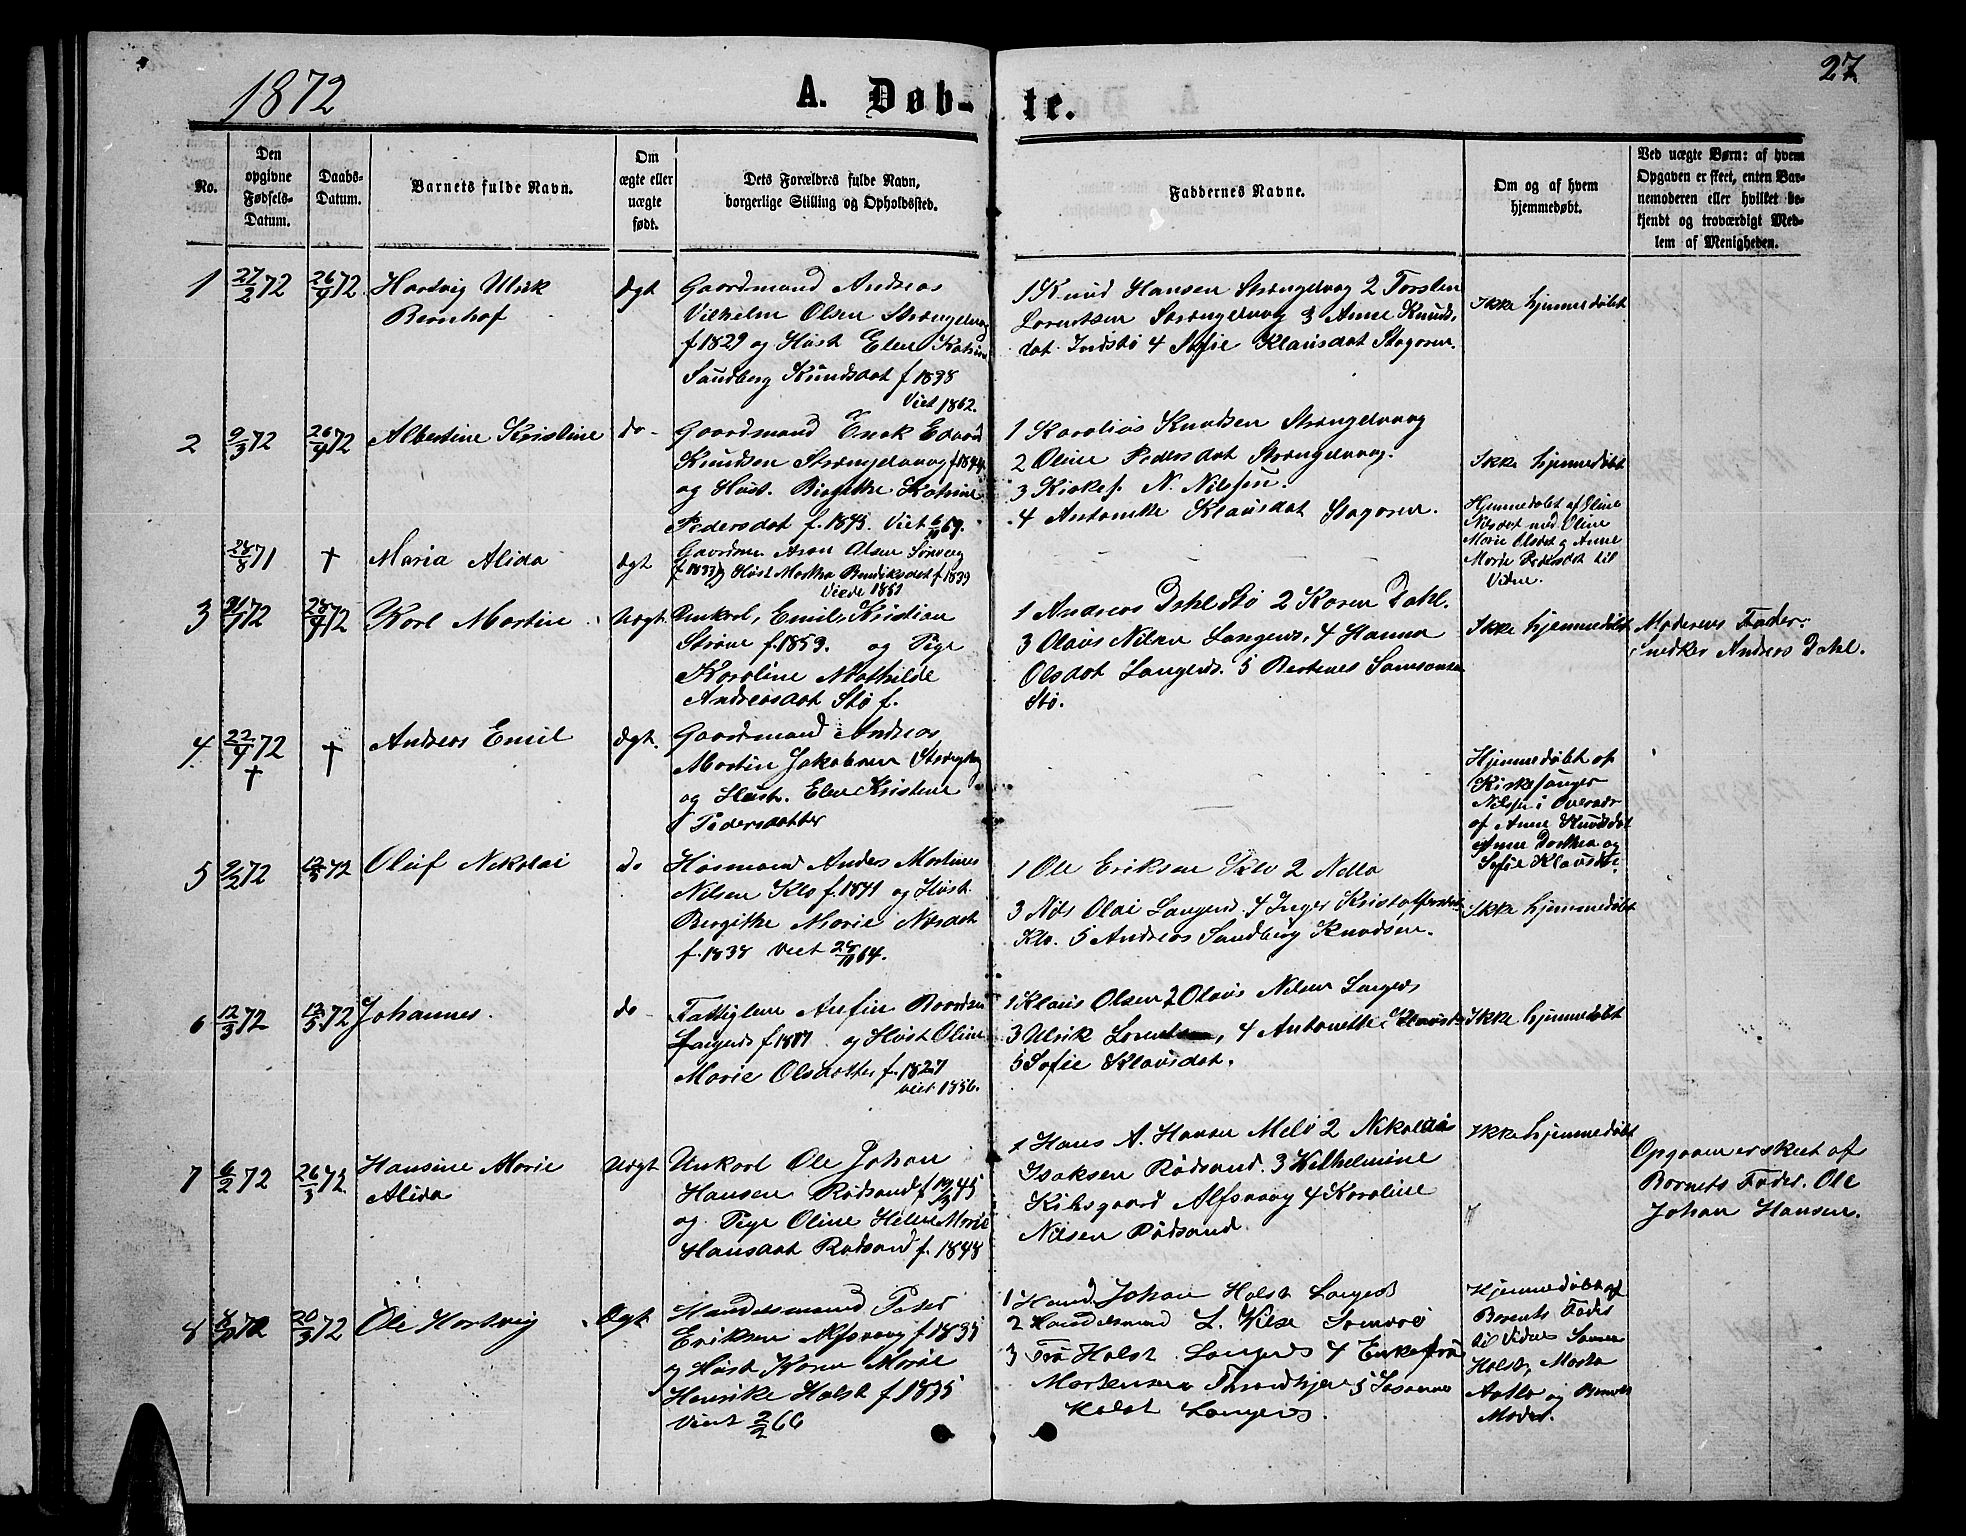 1872
A. Døb-
te.
27.
No.
Den
opgivne
Fødsels-
Datum.
Daabs-
Datum.
Barnets fulde Navn.
Om
ægte eller
uægte
født.
Dets Forældres fulde Navn,
borgerlige Stilling og Opholdssted.
Faddernes Navne.
Om og af hvem
hjemmedøbt.
Ved uægte Børn: af hvem
Opgaven er skeet, enten Bar-
nemoderen eller hvilket be-
kjendt og troværdigt Med-
lem af Menigheden.
1 27/2 72 26/4 72 Hartvig Ulrik
Bernhof
Ægt
Gaardmand Andreas
Vilhelm Olsen Strengelvaag
f 1829 og Hust Elen Katrine
Sandberg Knudsdat f 1838
Viet 1862.
1 Knud Hansen Strengelvaag 2 Torsten
Lorentsen Strengelvaag 3 Anne Knuds-
dat Indstø 4 Sofie Klausdat Skogoren.
Ikke hjemmedøbt
2 9/3 72 26/4 72 Albertine Kristine do
Gaardmand Enok Edvard
Knudsen Strengelvaag f 1844
og Hust. Birgithe Katrine
Pedersdat f. 1845. Viet 69.
1 Karolius Knudsen Strengelvaag
2 Oline Pedersdat Strengelvaag.
3 Kirkes. N. Nilsen.
4 Antonike Klausdat Skogoren.
Ikke hjemmedøbt
28/8 71 † Maria Alida Ægt
Gaardm. Aron Olsen
f 1833 og Hust Martha Benriksdat f 1839
Viede 1857
Hjemmedøbt af Oline
Nilsdat med Oline
Marie Olsdat og Anne
Marie Pedersdat til
Vidne.
3 72 28/4 72 Karl Martin Uægt.
Unkarl, Emil Kristian
Strøm f. 1853. og Pige
Karoline Mathilde
Andreasdat Stø f.
1 Andreas Dahl Stø 2 Karen Dahl.
3 Olaus Nilsen Langenes, 4 Hanna
Olsdat Langenes. 5 Bertines Samsonsen
Stø.
Ikke hjemmedøbt
Moderens Fader
Snedker Andreas Dahl.
4 22/4 72 † † Andreas Emil Ægt.
Gaardmand Andreas
Martin Jakobsen
og Hust. Elen Kristine
Pedersdatter
Hjemmedøbt af
Kirkesanger
Nilsen i Overvær
af Anne Knudsdat
Anne Dorthea og
Sofie Klausdat.
5 9/2 72 12/5 72 Oluf Nikolai do
Husmand Anders Martines
Nilsen Klo f. 1841 og Hust
Bergithe Marie Nilsdat
f. 1838 Viet 28/10 64.
1 Ole Eriksen Klo 2 Nella
3 Nils Olai Langenes. 4 Inger Kristoffersdat
Klo. 5 Andreas Sandberg Knudsen.
Ikke hjemmedøbt
6 12/3 72 12/5 72 Johannes. do
Fattiglem Anfin Baardsen
Langenes f 1817 og Hust Oline
Marie Olsdatter f. 1827
Viet 1856.
1 Klaus Olsen 2 Olaus Nilsen Langenes
3 Ulrik Lorentsen, 4 Antonette Klausdat
5 Sofie Klausdat.
Ikke hjemmedøbt
7 6/2 72 26/3 72 Hansine Marie
Alida
Uægt
Unkarl Ole Johan
Hansen Rødsand f 45
og Pige Oline Helene Marie
Hansdat Rødsand f. 1848
1 Hans A. Hansen Melø 2 Nikolai
Isaksen Rødsand. 3 Vilhelmine
Kiilsgaard Alfsvaag 4 Karoline
Nilsen Rødsand
Ikke hjemmedøbt
Opgaven er skeet af
Barnets Fader. Ole
Johan Hansen.
8 72 20/3 72 Ole Hartvig Ægt.
Handelsmand Peter
Eriksen Alfsvaag f 1835
og Hust Karen Marie
Henrike Holst f 1835
Viet 2/2 60
1 Hand. Johan Holst Langenes
2 Handelsmand L. Kise Sandvær
3 Fru Holst Langenes 4 Enkefru
Mortensen Thrandhjem 5 Susanne
Holst Langenes.
Hjemmedøbt af
Barnets Fader
til Vidnes
Holst, Marta
og Barnets
Moder.